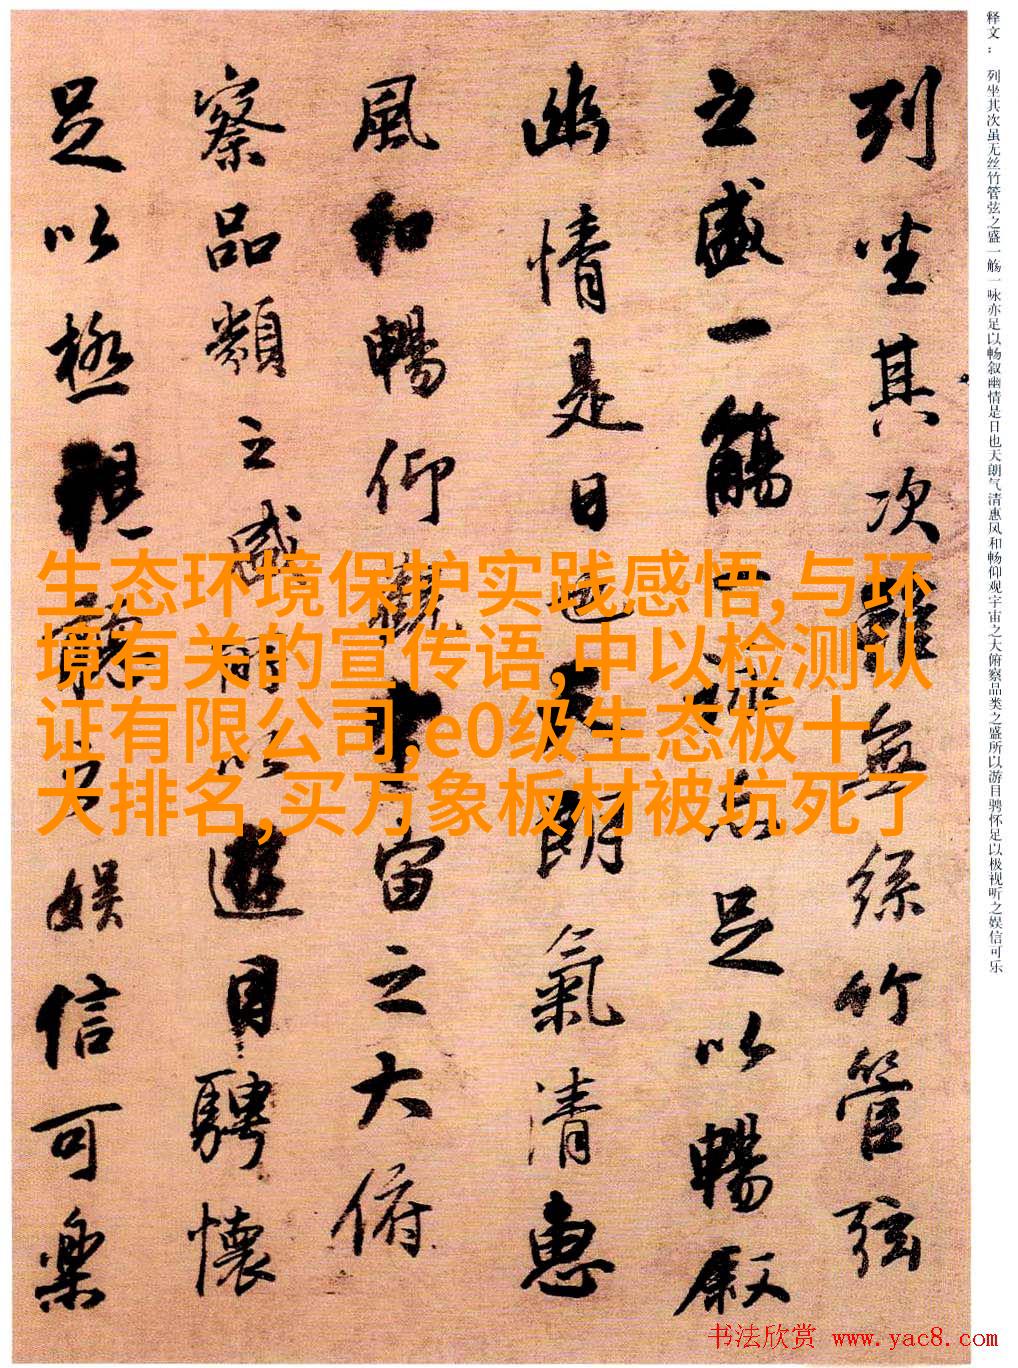 释文： 列坐其次虽无丝竹管弦之盛一觞一咏亦足以畅叙幽情是日也天朗气清惠风和畅仰观宇宙之大俯察品类之盛所以游目骋怀足以极视听之娱信可乐
列坐其次雖無絲竹管弦
之盛一觴一詠亦足以暢叙
幽情是日也天朗氣清惠
風和暢仰觀宇宙之大俯
察品類之盛所以遊目騁懷
足以極視聽之娛信可樂
生态环境保护实践感悟,与环
境有关的宣传语,中以检测认
证有限公司,e0级生态板十
大排名,买万象板材被坑死了
书法欣赏 www.yac8.com